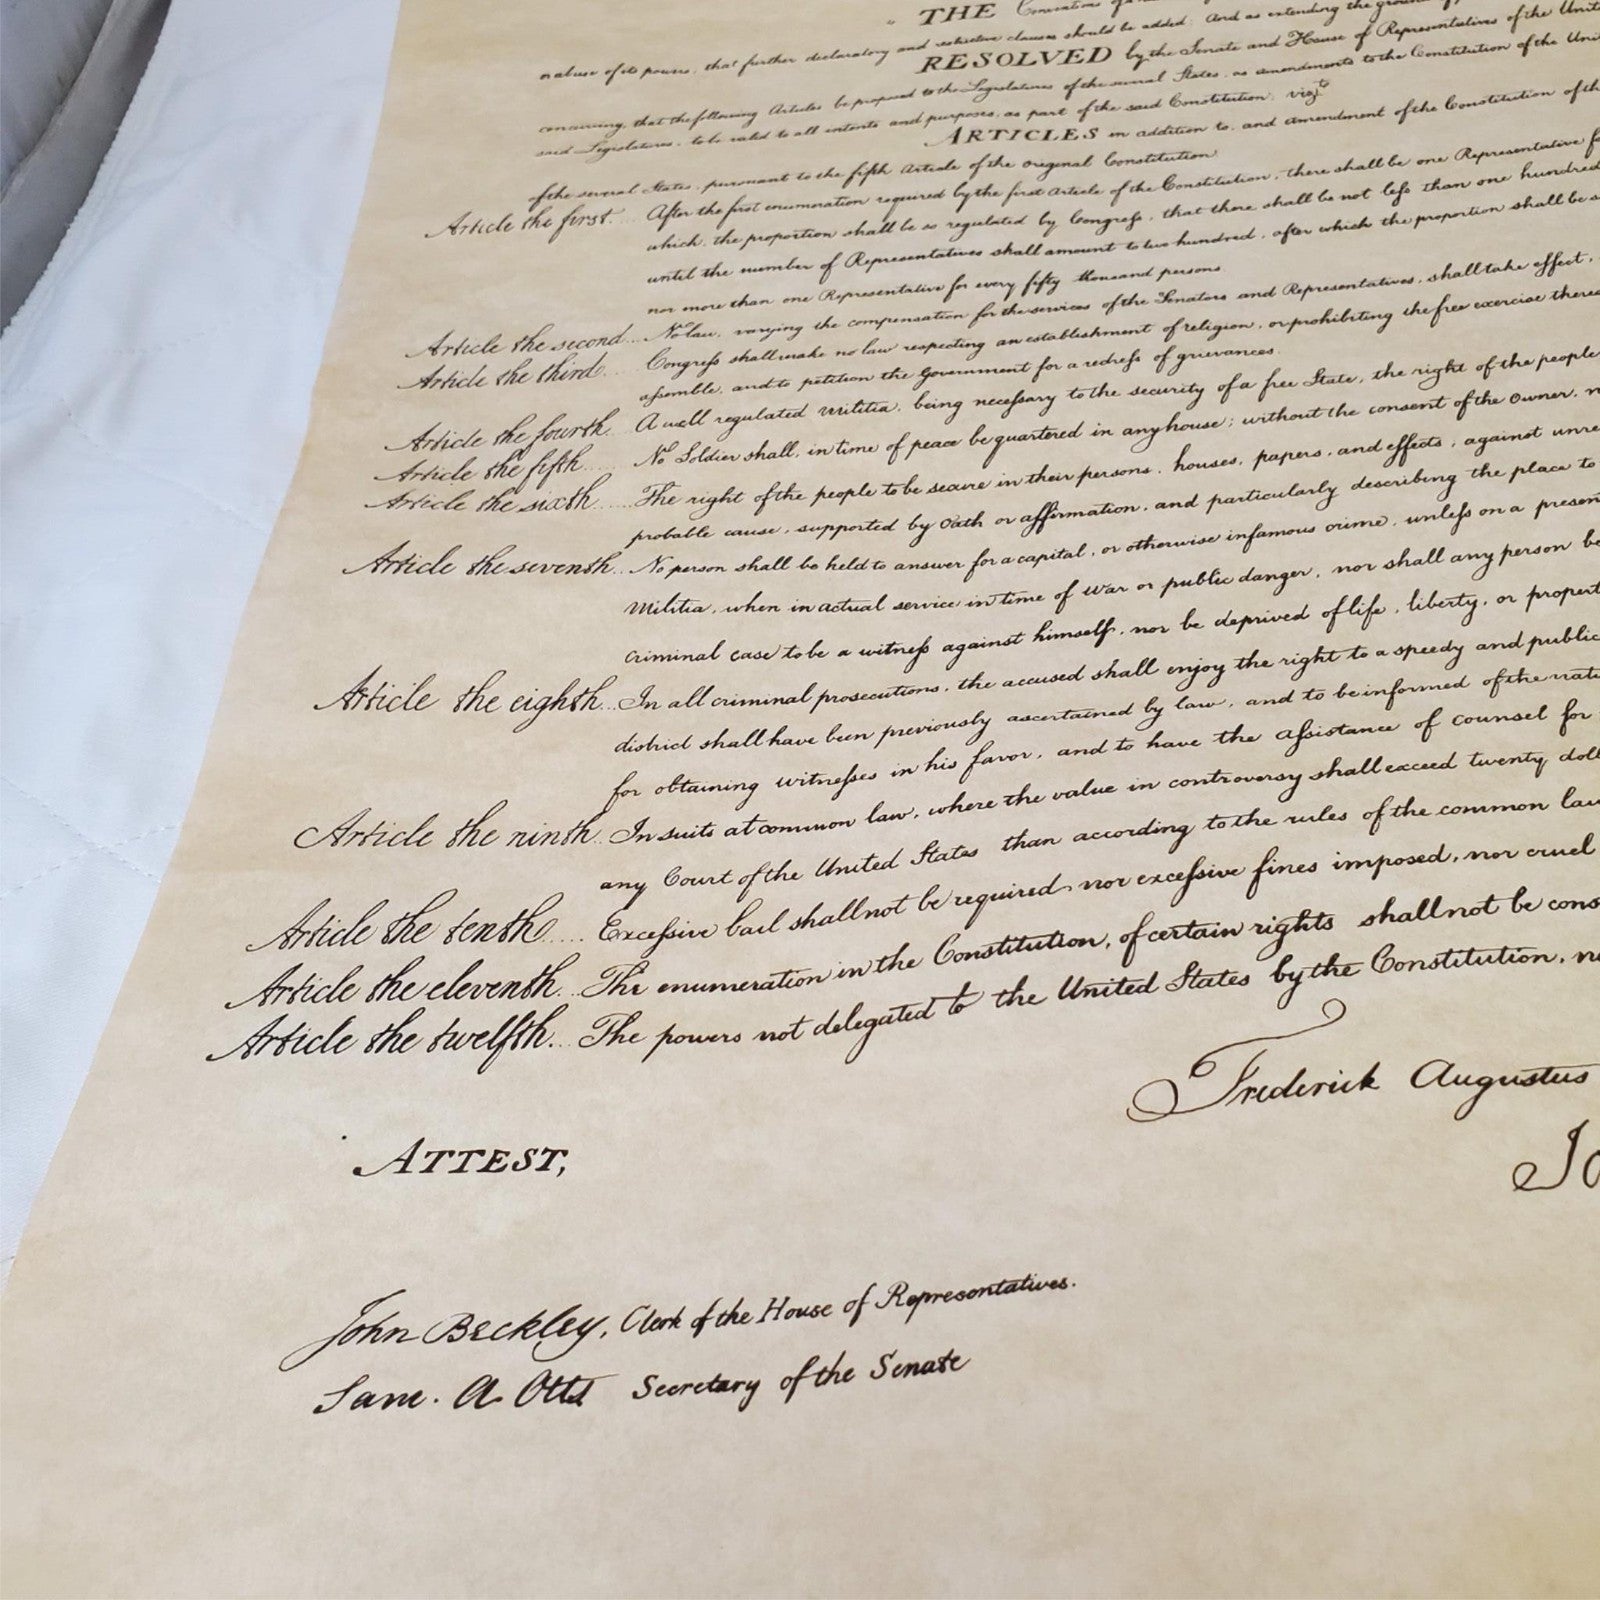 THE Conventions of a
or abuse of its powers, that further declaratory and restrictive clauses should be added: And as extending the ground of
RESOLVED by the Senate and House of Representatives of the Unit
concurring, that the following Articles be proposed to the Legislatures of the several States, as amendments to the Constitution of the Uni
said Legislatures, to be valid to all intents and purposes, as part of the said Constitution; vizt
ARTICLES in addition to, and amendment of the Constitution of th
of the several States, pursuant to the fifth Article of the original Constitution
Article the first.... After the first enumeration required by the first Article of the Constitution, there shall be one Representative f
which, the proportion shall be so regulated by Congress, that there shall be not less than one hundred
until the number of Representatives shall amount to two hundred, after which the proportion shall be s
nor more than one Representative for every fifty thousand persons.
Article the second... No law, varying the compensation for the services of the Senators and Representatives, shall take effect,
Article the third.... Congress shall make no law respecting an establishment of religion, or prohibiting the free exercise there
assemble, and to petition the Government for a redress of grievances.
Article the fourth... A well regulated Militia, being necessary to the security of a free State, the right of the people
Article the fifth.... No Soldier shall, in time of peace be quartered in any house, without the consent of the Owner, n
Article the sixth..... The right of the people to be secure in their persons, houses, papers, and effects, against unre
probable cause, supported by Oath or affirmation, and particularly describing the place to
Article the seventh... No person shall be held to answer for a capital, or otherwise infamous crime, unless on a presen
Militia, when in actual service in time of War or public danger; nor shall any person be
criminal case to be a witness against himself, nor be deprived of life, liberty, or propert
Article the eighth... In all criminal prosecutions, the accused shall enjoy the right to a speedy and public
district shall have been previously ascertained by law, and to be informed of the natu
for obtaining witnesses in his favor, and to have the assistance of counsel for
Article the ninth... In suits at common law, where the value in controversy shall exceed twenty doll
any Court of the United States than according to the rules of the common law
Article the tenth..... Excessive bail shall not be required nor excessive fines imposed, nor cruel
Article the eleventh... The enumeration in the Constitution, of certain rights shall not be cons
Article the twelfth... The powers not delegated to the United States by the Constitution, n
Frederick Augustus
Jo
ATTEST,
John Beckley, Clerk of the House of Representatives.
Sam. A Otis Secretary of the Senate